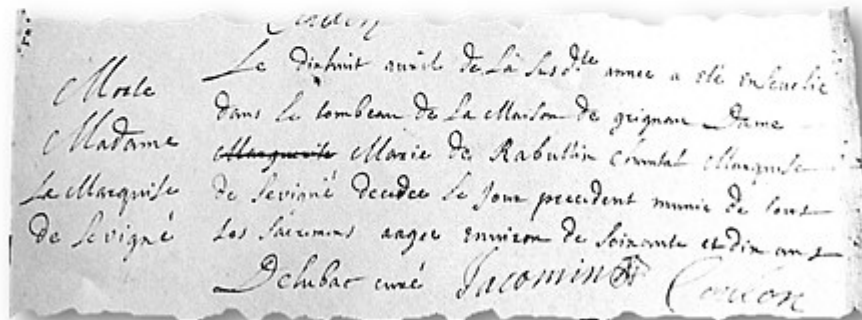 Morte
Madame
La Marquise
de Sevigné
Le dixhuit avril de la susdte annee a ete ensevelie
dans le tombeau de la Maison de grignan Dame
Marguerite Marie de Rabuttin Chantal Marquise
de Sevigné decedee le Jour precedent munie de tous
les sacremens aagee environ de soixante et dix ans
Delubac curé Jacomin Coulon